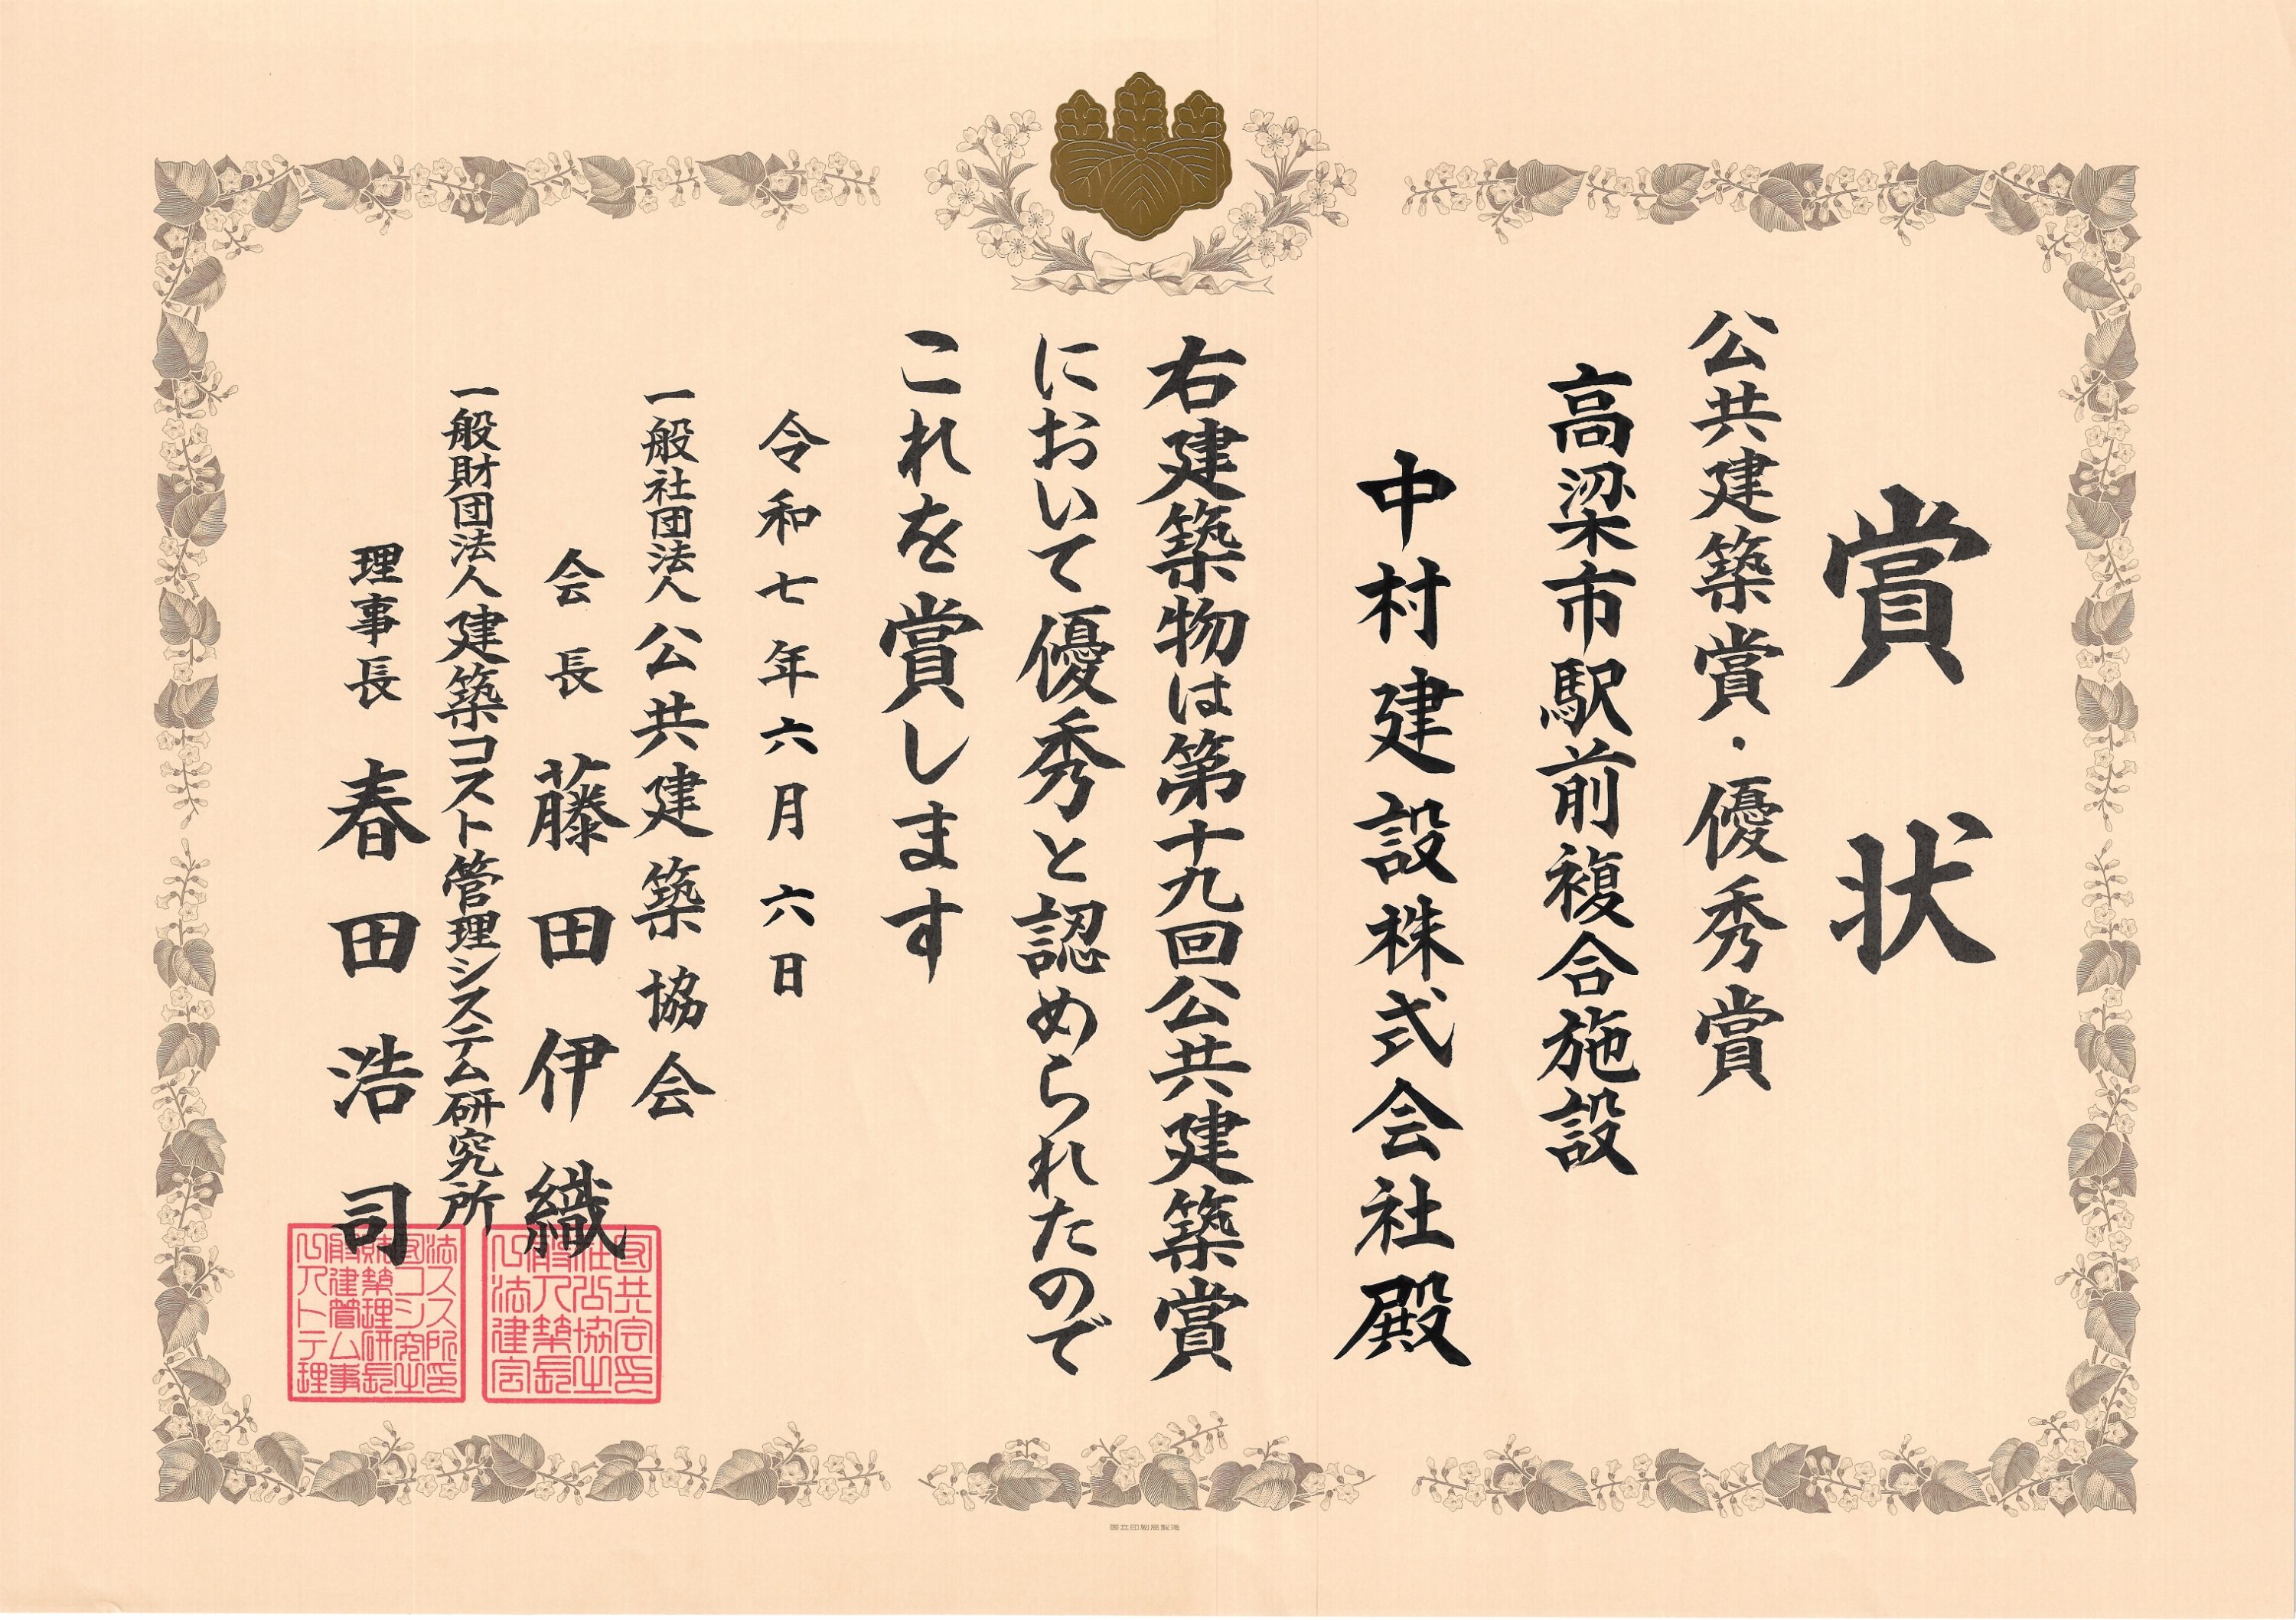 賞状
公共建築賞・優秀賞
高梁市駅前複合施設
中村建設株式会社殿
右建築物は第十九回公共建築賞
において優秀と認められたので
これを賞します
令和七年六月六日
一般社団法人公共建築協会
会長 藤田伊織
一般財団法人建築コスト管理システム研究所
理事長 春田浩司
国立印刷局製造